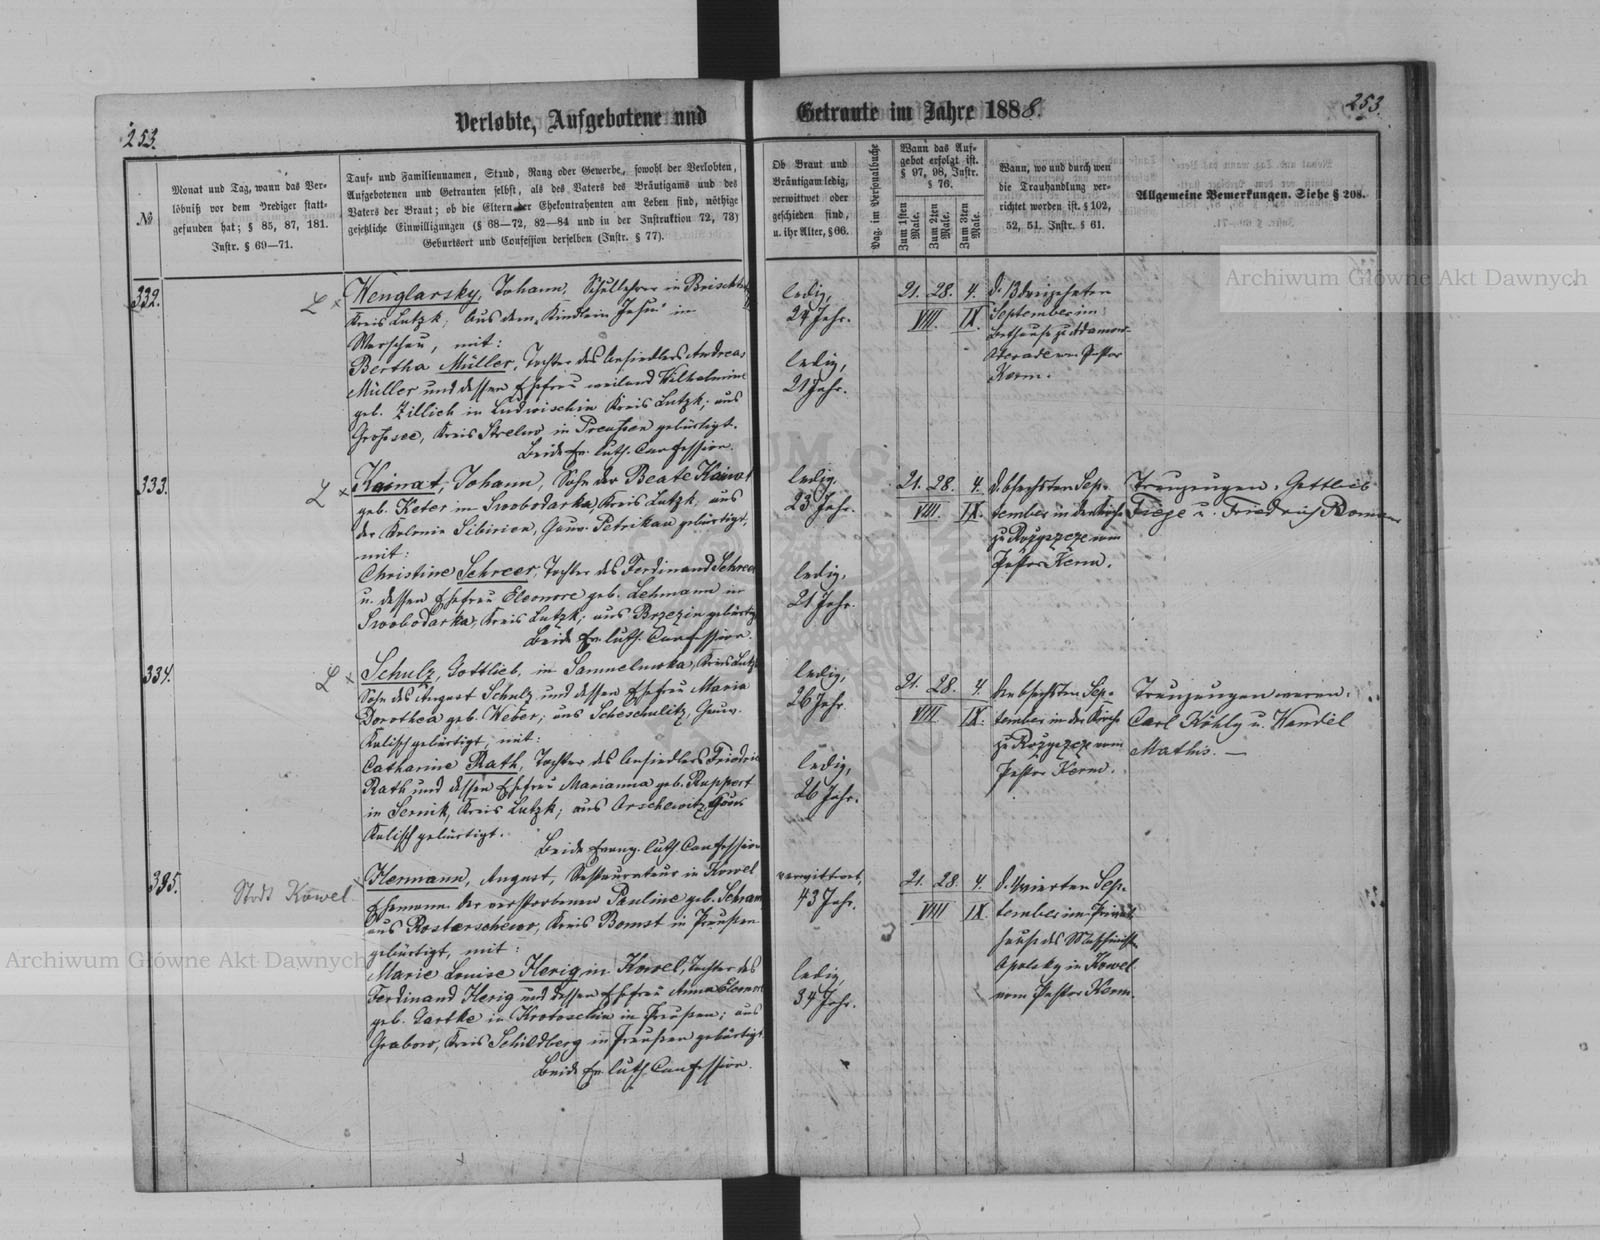 Verlobte, Aufgebotene und
Getraute im Jahre 1888.
253.
253.
№
Monat und Tag, wann das Ver-
löbniß vor dem Prediger statt-
gefunden hat; § 85, 87, 181.
Instr. § 69—71.
Tauf- und Familiennamen, Stand, Rang oder Gewerbe, sowohl der Verlobten,
Aufgebotenen und Getrauten selbst, als des Vaters des Bräutigams und des
Vaters der Braut; ob die Eltern der Ehekontrahenten am Leben sind, nöthige
gesetzliche Einwilligungen (§ 68—72, 82—84 und in der Instruktion 72, 73)
Geburtsort und Confession derselben (Instr. § 77).
Ob Braut und
Bräutigam ledig,
verwittwet oder
geschieden sind,
u. ihr Alter, § 66.
Pag. im Personalbuche
Wann das Auf-
gebot erfolgt ist.
§ 97, 98, Instr.
§ 76.
Zum 1sten Male.
Zum 2ten Male.
Zum 3ten Male.
Wann, wo und durch wen
die Trauhandlung ver-
richtet worden ist. § 102,
52, 51. Instr. § 61.
Allgemeine Bemerkungen. Siehe § 208.
332.
L × Wenglarsky, Johann, Schullehrer in
Kreis Lutzk; aus dem „Kindlein Jesu" in
Warschau, mit:
Bertha Müller, Tochter des Ansiedlers Andreas
Müller und dessen Ehefrau weiland Wilhelmine
geb. Zillich in Ludwischin Kreis Lutzk; aus
Großsee, Kreis Strelno in Preußen gebürtigt.
Beide Ev. luth. Confession.
ledig,
24 Jahr.
ledig,
21 Jahr.
21. 28. 4.
VIII. IX.
d. 13 dreizehnten
September im
Bethause zu
vom Pastor
Kerm.
333.
L × Kainat, Johann, Sohn der Beate Kainat
geb. Keter in Swobodarka, Kreis Lutzk, aus
der Kolonie Sibirien, Gouv. Petrikau gebürtigt,
mit:
Christine Schreer, Tochter des Ferdinand Schreer
u. dessen Ehefrau Eleonore geb. Lehmann in
Swobodarka, Kreis Lutzk; aus Brzezin gebürtigt
Beide Ev. luth. Confession.
ledig.
23 Jahr.
ledig,
21 Jahr.
21. 28. 4.
VIII. IX.
d. 6 sechsten Sep-
tember in der Kirche
zu Rożyszcze vom
Pastor Kerm.
Trauzeugen: Gottlieb
Fiege u. Friedrich
334.
L × Schulz, Gottlieb, in Samuelinwka, Kreis Lutzk
Sohn des August Schulz und dessen Ehefrau Maria
Dorothea geb. Weber; aus Scheschulitz, Gouv.
Kalisch gebürtigt, mit:
Catharine Rath, Tochter des Ansiedlers Friedrich
Rath und dessen Ehefrau Marianna geb. Ruppert
in Sernik, Kreis Lutzk; aus Orschewitz, Gouv
Kalisch gebürtigt.
Beide Evang. luth Confession
ledig,
26 Jahr.
ledig,
26 Jahr.
21. 28. 4.
VIII. IX.
Den 6 sechsten Sep-
tember in der Kirche
zu Rożyszcze vom
Pastor Kerm.
Trauzeugen waren:
Carl Köhly u. Wandel
Mathis. —
335.
Stadt Kowel.
× Hermann, August, Restaurateur in Kowel
Ehemann der verstorbenen Pauline geb. Schram
aus Rostarschewo, Kreis Bomst in Preußen
gebürtigt, mit:
Marie Louise Herig in Kowel, Tochter des
Ferdinand Herig und dessen Ehefrau Anna Eleonore
geb. Gartke in Krotoschin in Preußen; aus
Grabow, Kreis Schildberg in Preußen gebürtigt
Beide Ev. luth. Confession.
verwittwet,
43 Jahr.
ledig,
34 Jahr.
21. 28. 4.
VIII IX.
d. 4 vierten Sep-
tember im Privat
hause des Maschinist
Apolsky in Kowel
vom Pastor Kerm.
Archiwum Główne Akt Dawnych
Archiwum Główne Akt Dawnych